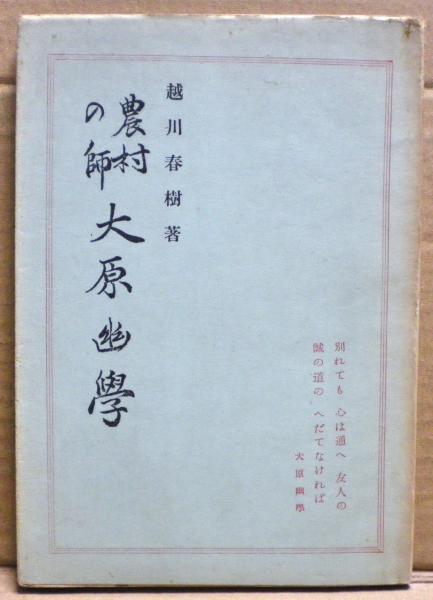 別れても 心は通へ 友人の
誠の道の へだてなければ
大原幽學
越川春樹著
農村の師 大原幽學